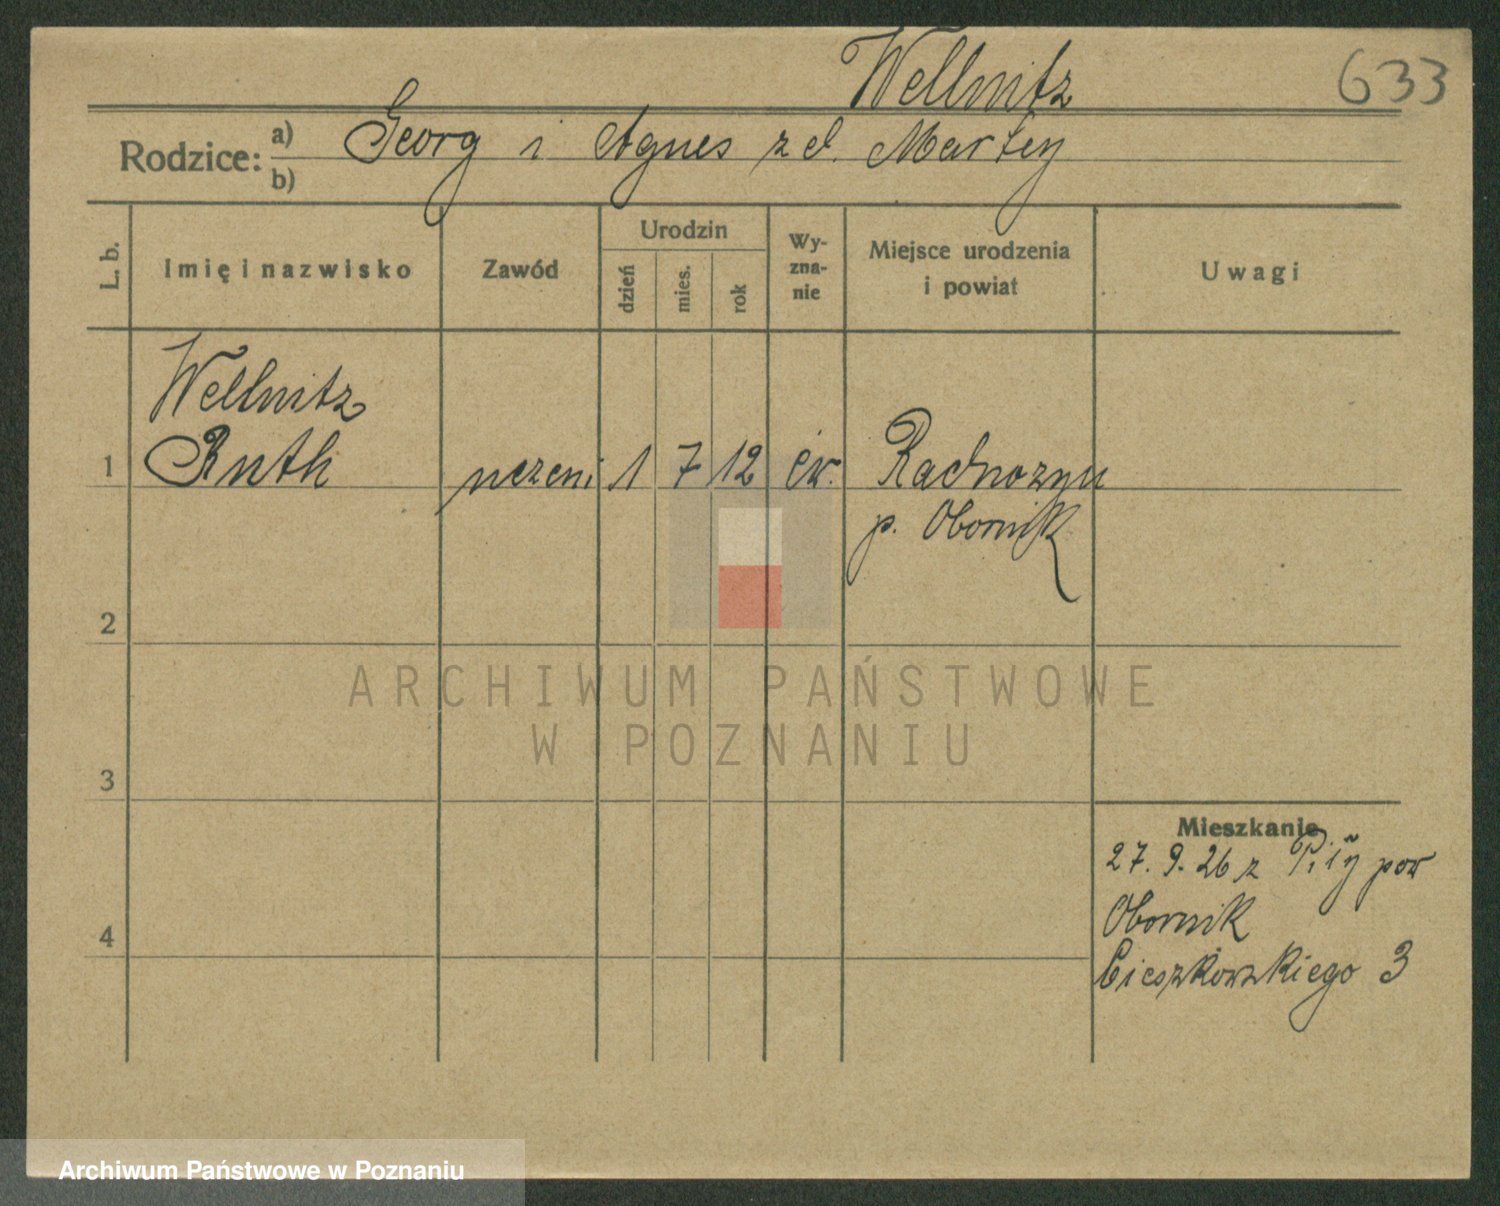 Wellnitz
633
Rodzice: a) Georg i Agnes z d. Martey
b)
L. b.
Imię i nazwisko
Zawód
Urodzin
dzień
mies.
rok
Wy-
zna-
nie
Miejsce urodzenia
i powiat
Uwagi
Wellnitz
1 Ruth uczeni 1 7 12 ew. Radnozyn
p. Obornik
2
ARCHIWUM PAŃSTWOWE
W POZNANIU
3
Mieszkanie
27. 9. 26 z pow
Obornik
4
Cieszkowskiego 3
Archiwum Państwowe w Poznaniu